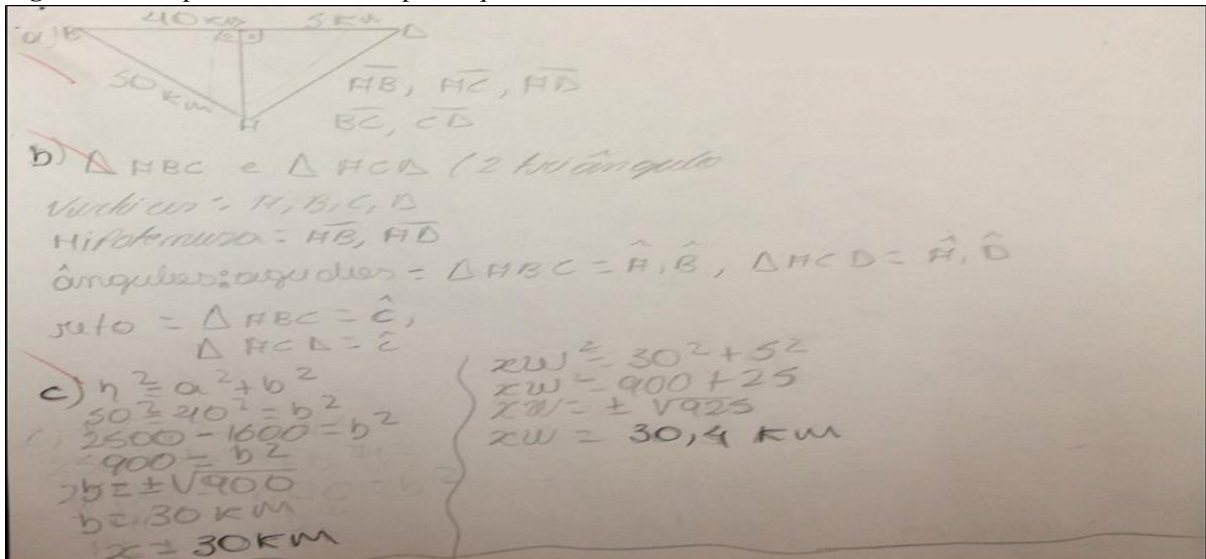 a) B 40 km 5 km D
50 km
A
AB, AC, AD
BC, CD
b) △ ABC e △ ACD (2 triângulo
A, B, C, D
Hipotenusa = AB, AD
ângulos: agudos = △ ABC = Â, B̂, △ ACD = Â, D̂
reto = △ ABC = Ĉ,
△ ACD = Ĉ
c) h² = a² + b²
50² = 40² = b²
2500 - 1600 = b²
900 = b²
b = ± √900
b = 30 km
x = 30 KM
xw² = 30² + 5²
xw = 900 + 25
xw = ± √925
xw = 30,4 KM